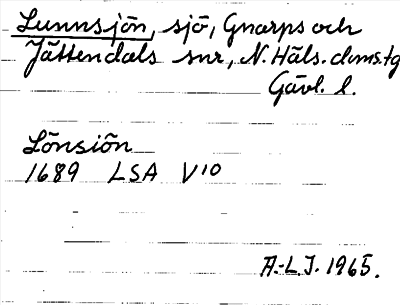 Lunnsjön, sjö, Gnarps och
Jättendals snr, N. Häls. dvms. tg
Gävl. l.
Lönsiön
1689 LSA V10
A.-L.J. 1965.